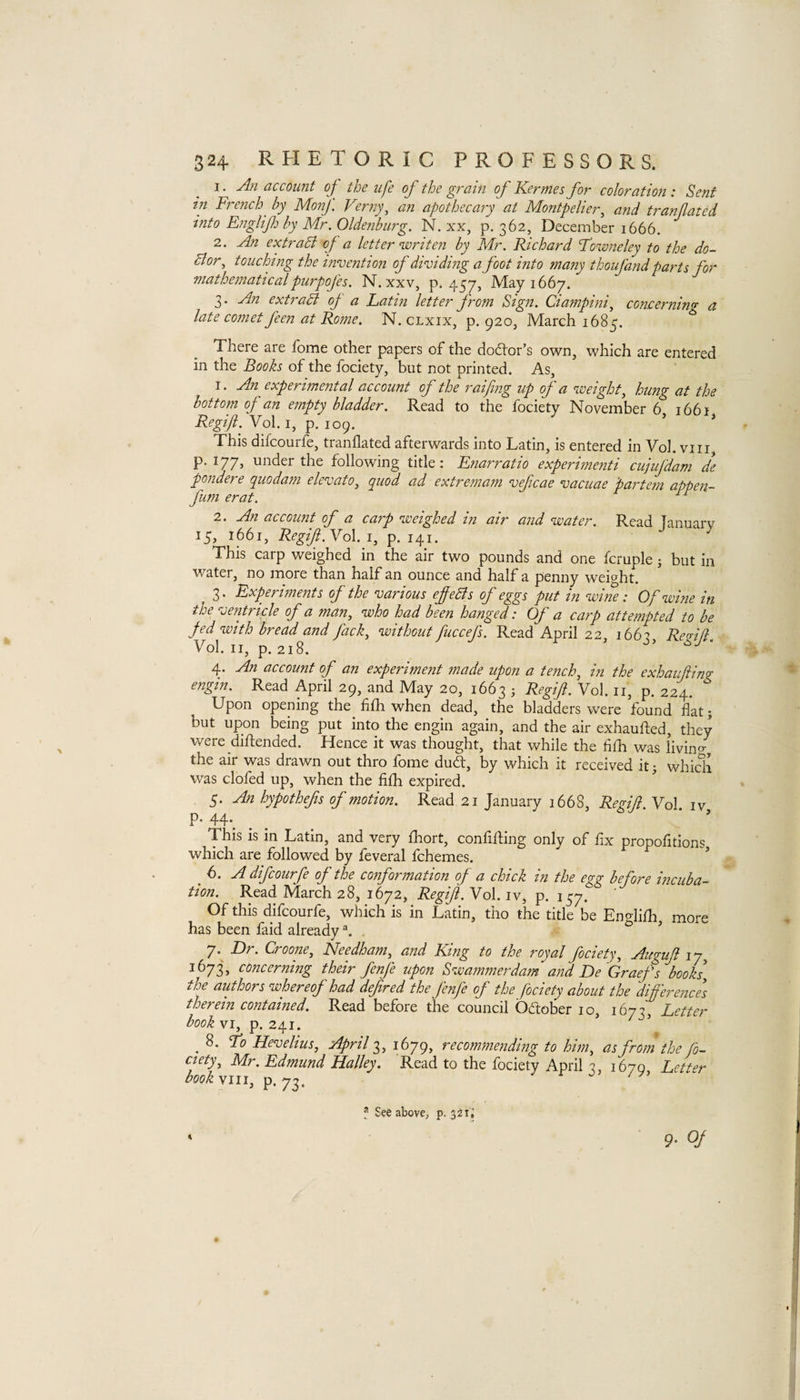 324 RHETORIC PROFESSORS.
1. An account of the uſe of the grain of Kermes for coloration: Sent
in French by Monſ. Verny, an apothecary at Montpelier, and tranſlated
into Engliſh by Mr. Oldenburg. N. xx, p. 362, December 1666.
2. An extract of a letter writen by Mr. Richard Towneley to the do-
ctor, touching the invention of dividing a foot into many thouſand parts for
mathematical purpoſes. N. xxv, p. 457, May 1667.
3. An extract of a Latin letter from Sign. Ciampini, concerning a
late comet ſeen at Rome. N. clxix, p. 920, March 1685.
There are ſome other papers of the doctor's own, which are entered
in the Books of the ſociety, but not printed. As,
1. An experimental account of the raiſing up of a weight, hung at the
bottom of an empty bladder. Read to the ſociety November 6, 1661,
Regiſt. Vol. i, p. 109.
This diſcourſe, tranſlated afterwards into Latin, is entered in Vol. viii,
p. 177, under the following title: Enarratio experimenti cujuſdam de
pondere quodam elevato, quod ad extremam veſicae vacuae partem appen-
ſum erat.
2. An account of a carp weighed in air and water. Read January
15, 1661, Regiſt. Vol. i, p. 141.
This carp weighed in the air two pounds and one ſcruple; but in
water, no more than half an ounce and half a penny weight.
3. Experiments of the various effects of eggs put in wine: Of wine in
the ventricle of a man, who had been hanged: Of a carp attempted to be
fed with bread and ſack, without ſucceſs. Read April 22, 1663, Regiſt.
Vol. ii, p. 218.
4. An account of an experiment made upon a tench, in the exhauſting
engin. Read April 29, and May 20, 1663; Regiſt. Vol. ii, p. 224.
Upon opening the fiſh when dead, the bladders were found flat;
but upon being put into the engin again, and the air exhauſted, they
were diſtended. Hence it was thought, that while the fiſh was living,
the air was drawn out thro ſome duct, by which it received it; which
was cloſed up, when the fiſh expired.
5. An hypotheſis of motion. Read 21 January 1668, Regiſt. Vol. iv,
p. 44.
This is in Latin, and very ſhort, conſiſting only of ſix propoſitions,
which are followed by ſeveral ſchemes.
6. A diſcourſe of the conformation of a chick in the egg before incuba-
tion. Read March 28, 1672, Regiſt. Vol. iv, p. 157.
Of this diſcourſe, which is in Latin, tho the title be Engliſh, more
has been ſaid already a.
7. Dr. Croone, Needham, and King to the royal ſociety, Auguſt 17,
1673, concerning their ſenſe upon Swammerdam and De Graef's books,
the authors whereof had deſired the ſenſe of the ſociety about the differences
therein contained. Read before the council October 10, 1673, Letter
book vi, p. 241.
8. To Hevelius, April 3, 1679, recommending to him, as from the ſo-
ciety, Mr. Edmund Halley. Read to the ſociety April 3, 1679, Letter
book viii, p. 73.
a See above, p. 321.
9. Of